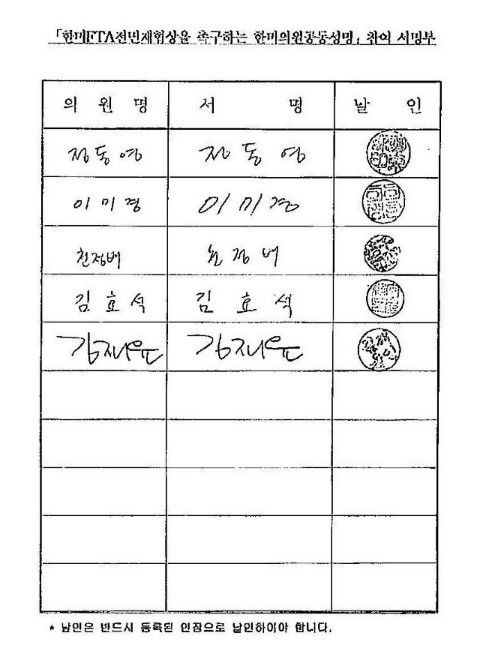 「한미FTA전면재협상을 촉구하는 한미의원공동성명」 참여 서명부
의 원 명 서 명 날 인
정동영 정동영
이미경 이미경
천정배 천정배
김효석 김효석
김재윤 김재윤
* 날인은 반드시 등록된 인장으로 날인하여야 합니다.